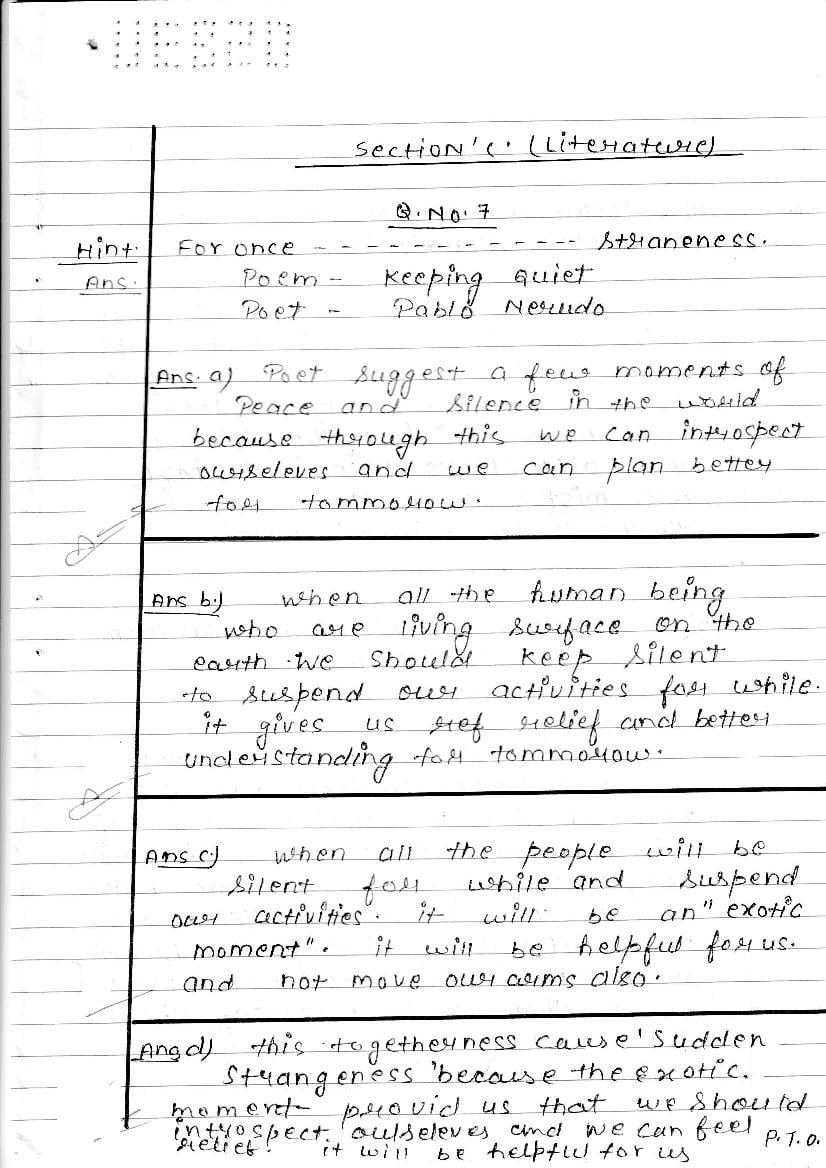 Section 'C' (Literature)
Q. No. 7
Hint. For once - - - - - - - - - - - - straneness.
Ans. Poem - Keeping Quiet
Poet - Pablo Nerudo
Ans. a) Poet suggest a few moments of
Peace and silence in the world
because through this we can introspect
ourseleves and we can plan better
for tommorow.
Ans b.) when all the human being
who are living surface on the
earth. We should keep silent
to suspend our activities for while.
it gives us ref relief and better
understanding for tommorow.
Ans c.) when all the people will be
silent for while and suspend
our activities. it will be an "exotic
moment". it will be helpful for us.
and not move our arms also.
Ans d) this togetherness cause 'Sudden
strangeness' because the exotic.
moment provid us that we should
introspect ourseleves and we can feel
relief. it will be helpful for us P.T.O.